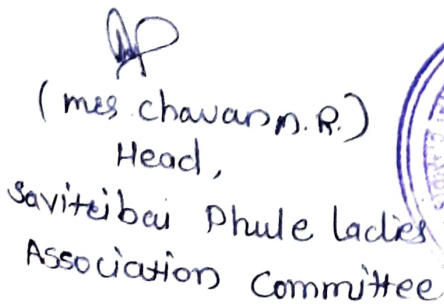 (mrs. Chavan n. R.)
Head,
Savitribai Phule ladies
Association Committee